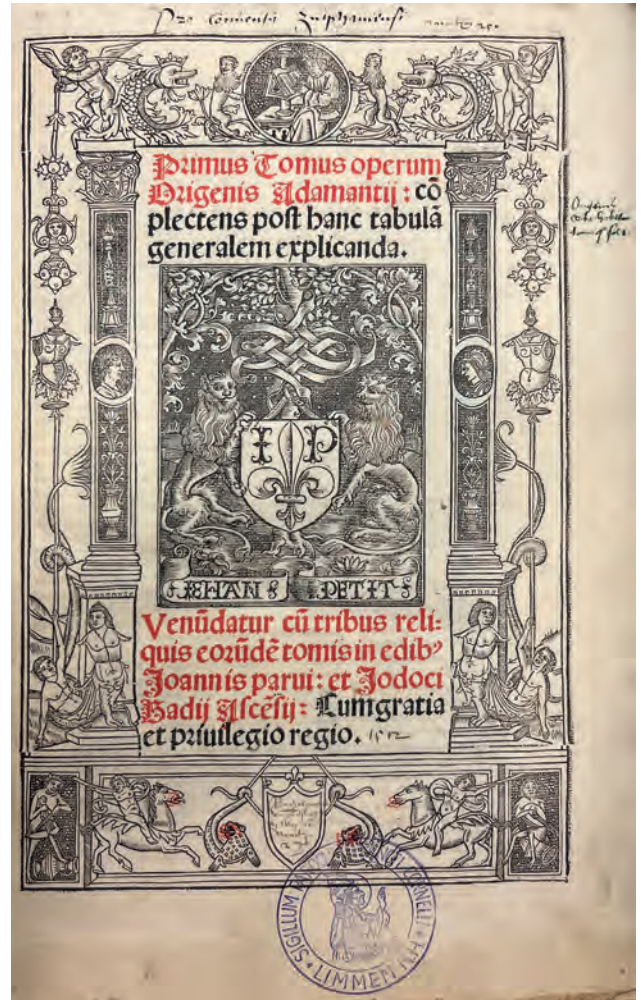 Pro Conventu Zutphaniensi
Primus Tomus operum
Origenis Adamantij : cō
plectens post hanc tabulā
generalem explicanda.
I P
IEHAN PETIT
Venūdatur cū tribus reli:
quis eorūdē tomis in edibꝰ
Joannis parui: et Jodoci
Badij Ascēsij: Cum gratia
et priuilegio regio. 1512
SIGILLUM CORNELII
LIMMEN